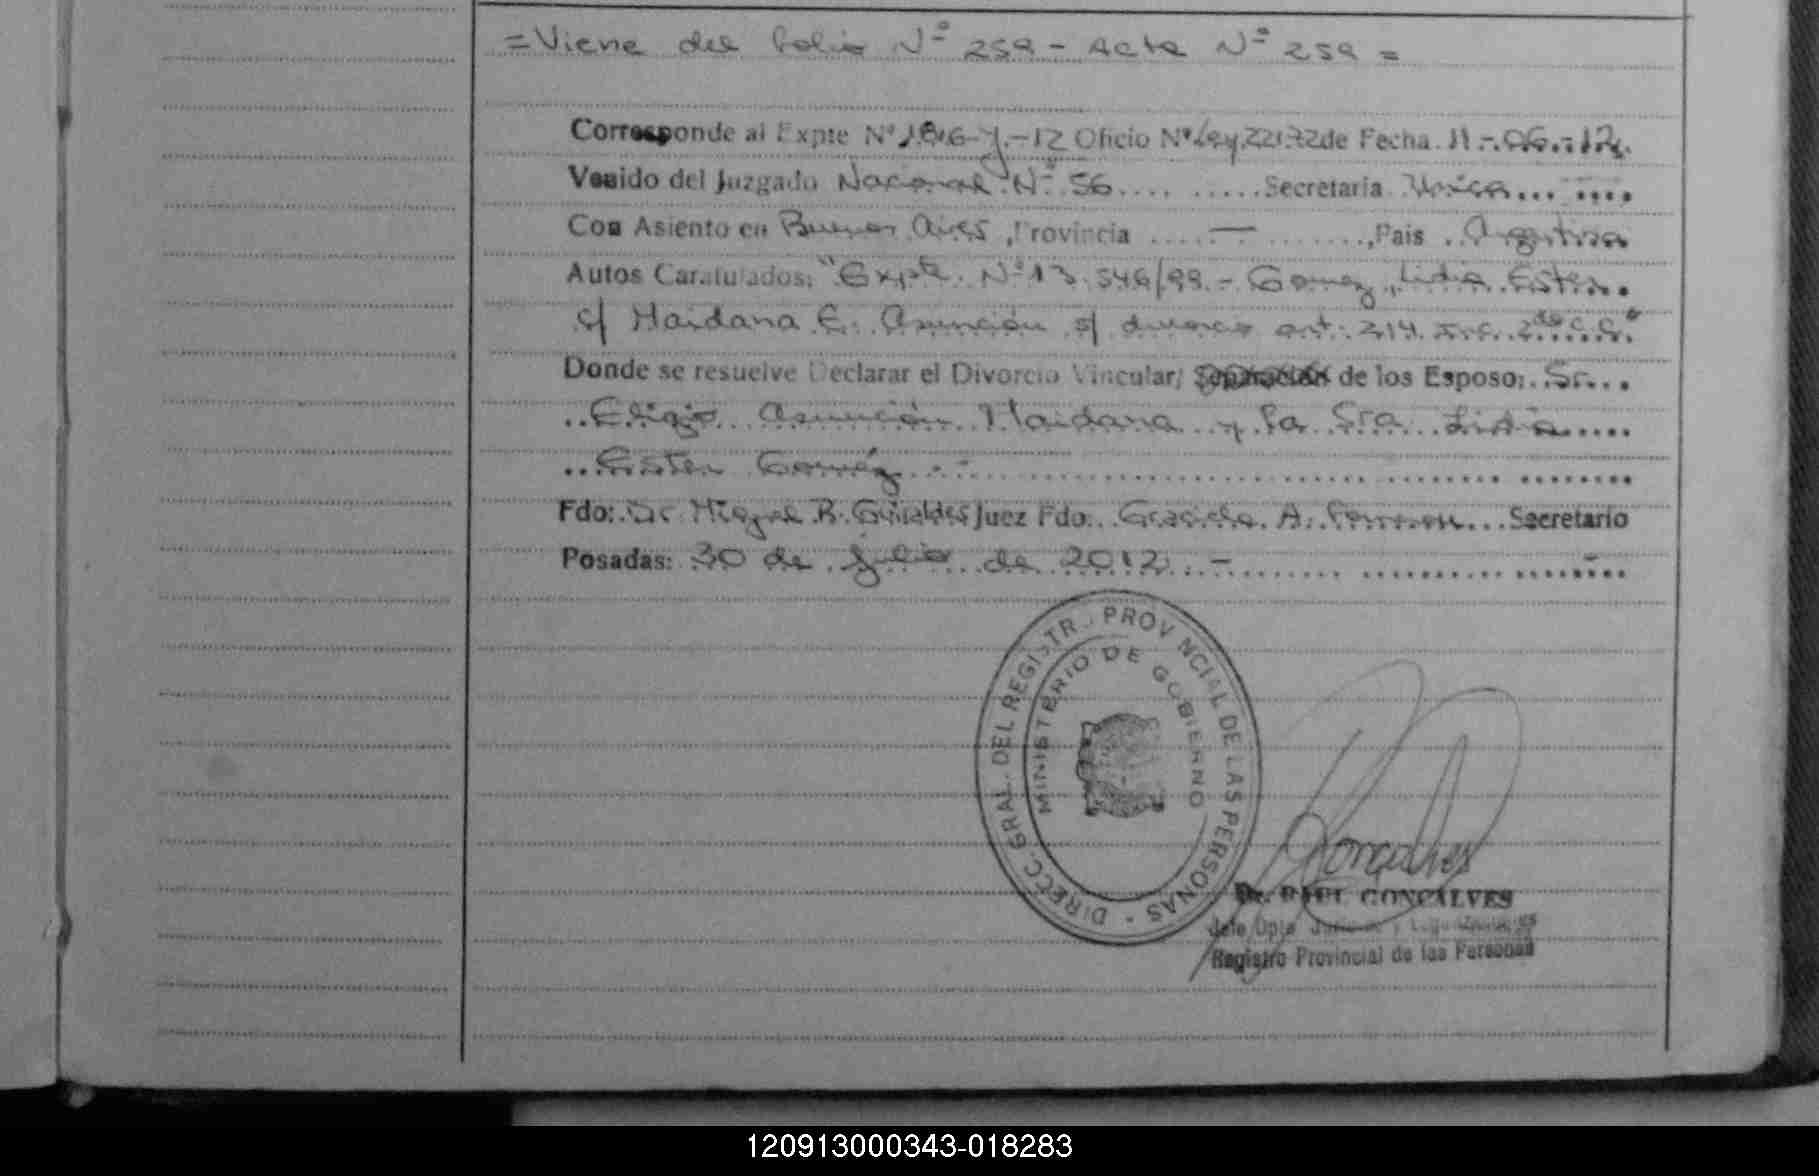 = Viene del folio Nº 259 - Acta Nº 259 =
Corresponde al Expte Nº 1816-Y-12 Oficio Nº Ley 22172 de Fecha 11-06-12.
Venido del Juzgado Nacional Nº 56 Secretaria Unica
Con Asiento en Buenos Aires, Provincia —, Pais Argentina
Autos Caratulados: "Expte. Nº 13.546/99 - Gomez, Lidia Ester
c/ Maidana E. Asunción s/ divorcio art. 214 inc. 2do C.C."
Donde se resuelve Declarar el Divorcio Vincular/ Separación de los Esposo: Sr.
Eligio Asunción Maidana y la Sra Lidia
Ester Goméz.-
Fdo: Dr. Miguel R. Juez Fdo: Graciela A. Secretario
Posadas: 30 de julio de 2012.-
DIRECC. GRAL. DEL REGISTR. PROVINCIAL DE LAS PERSONAS
MINISTERIO DE GOBIERNO
Goncalves
Dr. RAUL GONCALVES
Jefe Dpto
Registro Provincial de las Personas
120913000343-018283